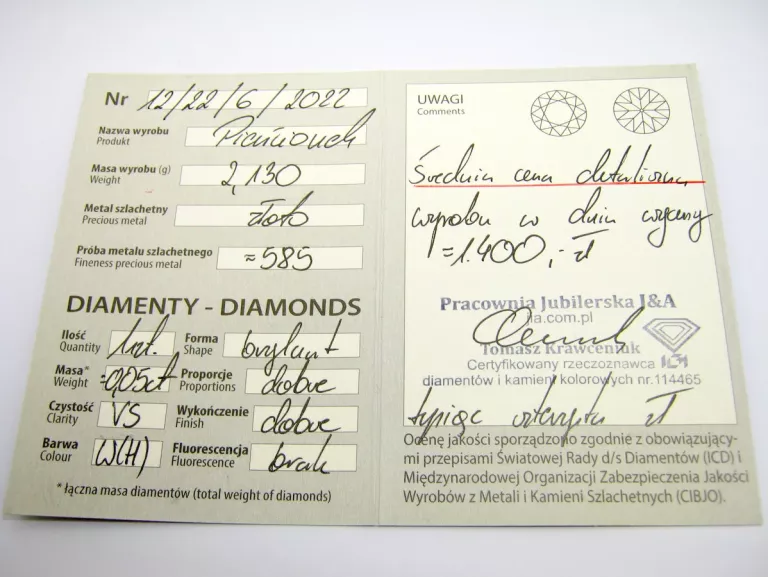 Nr 12/22/6/2022
Nazwa wyrobu Pierścionek
Produkt
Masa wyrobu (g) 2,130
Weight
Metal szlachetny złoto
Precious metal
Próba metalu szlachetnego ≈585
Fineness precious metal
DIAMENTY - DIAMONDS
Ilość 1szt. Forma brylant
Quantity Shape
Masa* ~0,05ct Proporcje dobre
Weight Proportions
Czystość VS Wykończenie dobre
Clarity Finish
Barwa W(H) Fluorescencja brak
Colour Fluorescence
* łączna masa diamentów (total weight of diamonds)
UWAGI
Comments
Średnia cena detaliczna
wyrobu w dniu wyceny
=1.400,- zł
Pracownia Jubilerska J&A
Tomasz Krawceniuk
Certyfikowany rzeczoznawca
diamentów i kamieni kolorowych nr.114465
tysiąc czterysta zł
Ocenę jakości sporządzono zgodnie z obowiązujący-
mi przepisami Światowej Rady d/s Diamentów (ICD) i
Międzynarodowej Organizacji Zabezpieczenia Jakości
Wyrobów z Metali i Kamieni Szlachetnych (CIBJO).